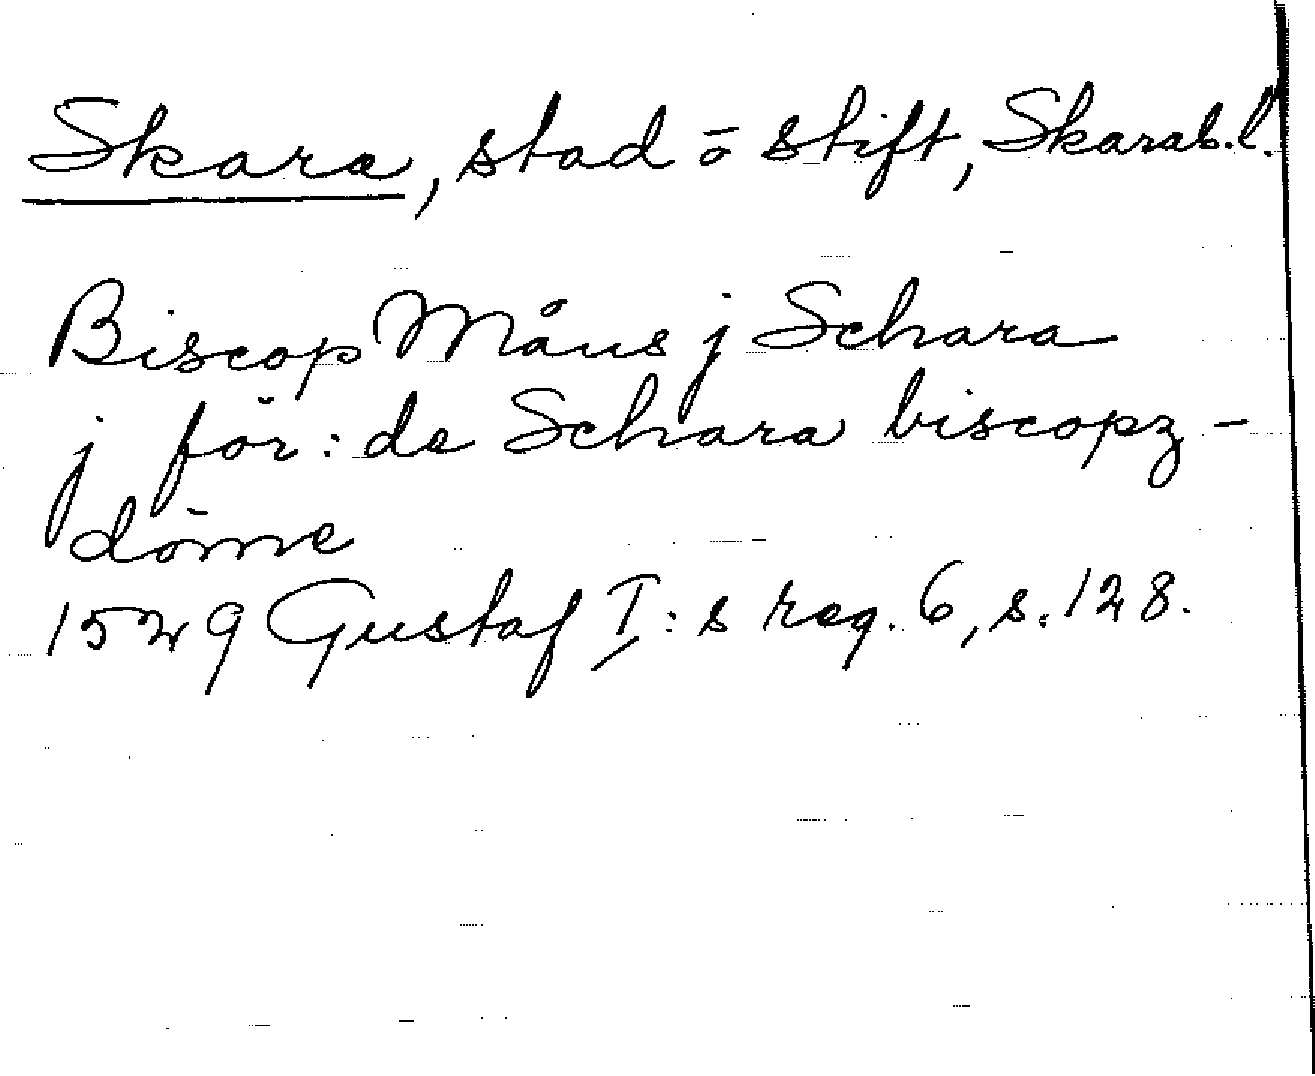 Skara, stad ō stift, Skarab.l.
Biscop Måus j Schara
j för: de Schara biscopz-
döme
1529 Gustaf I:s reg. 6, s. 128.